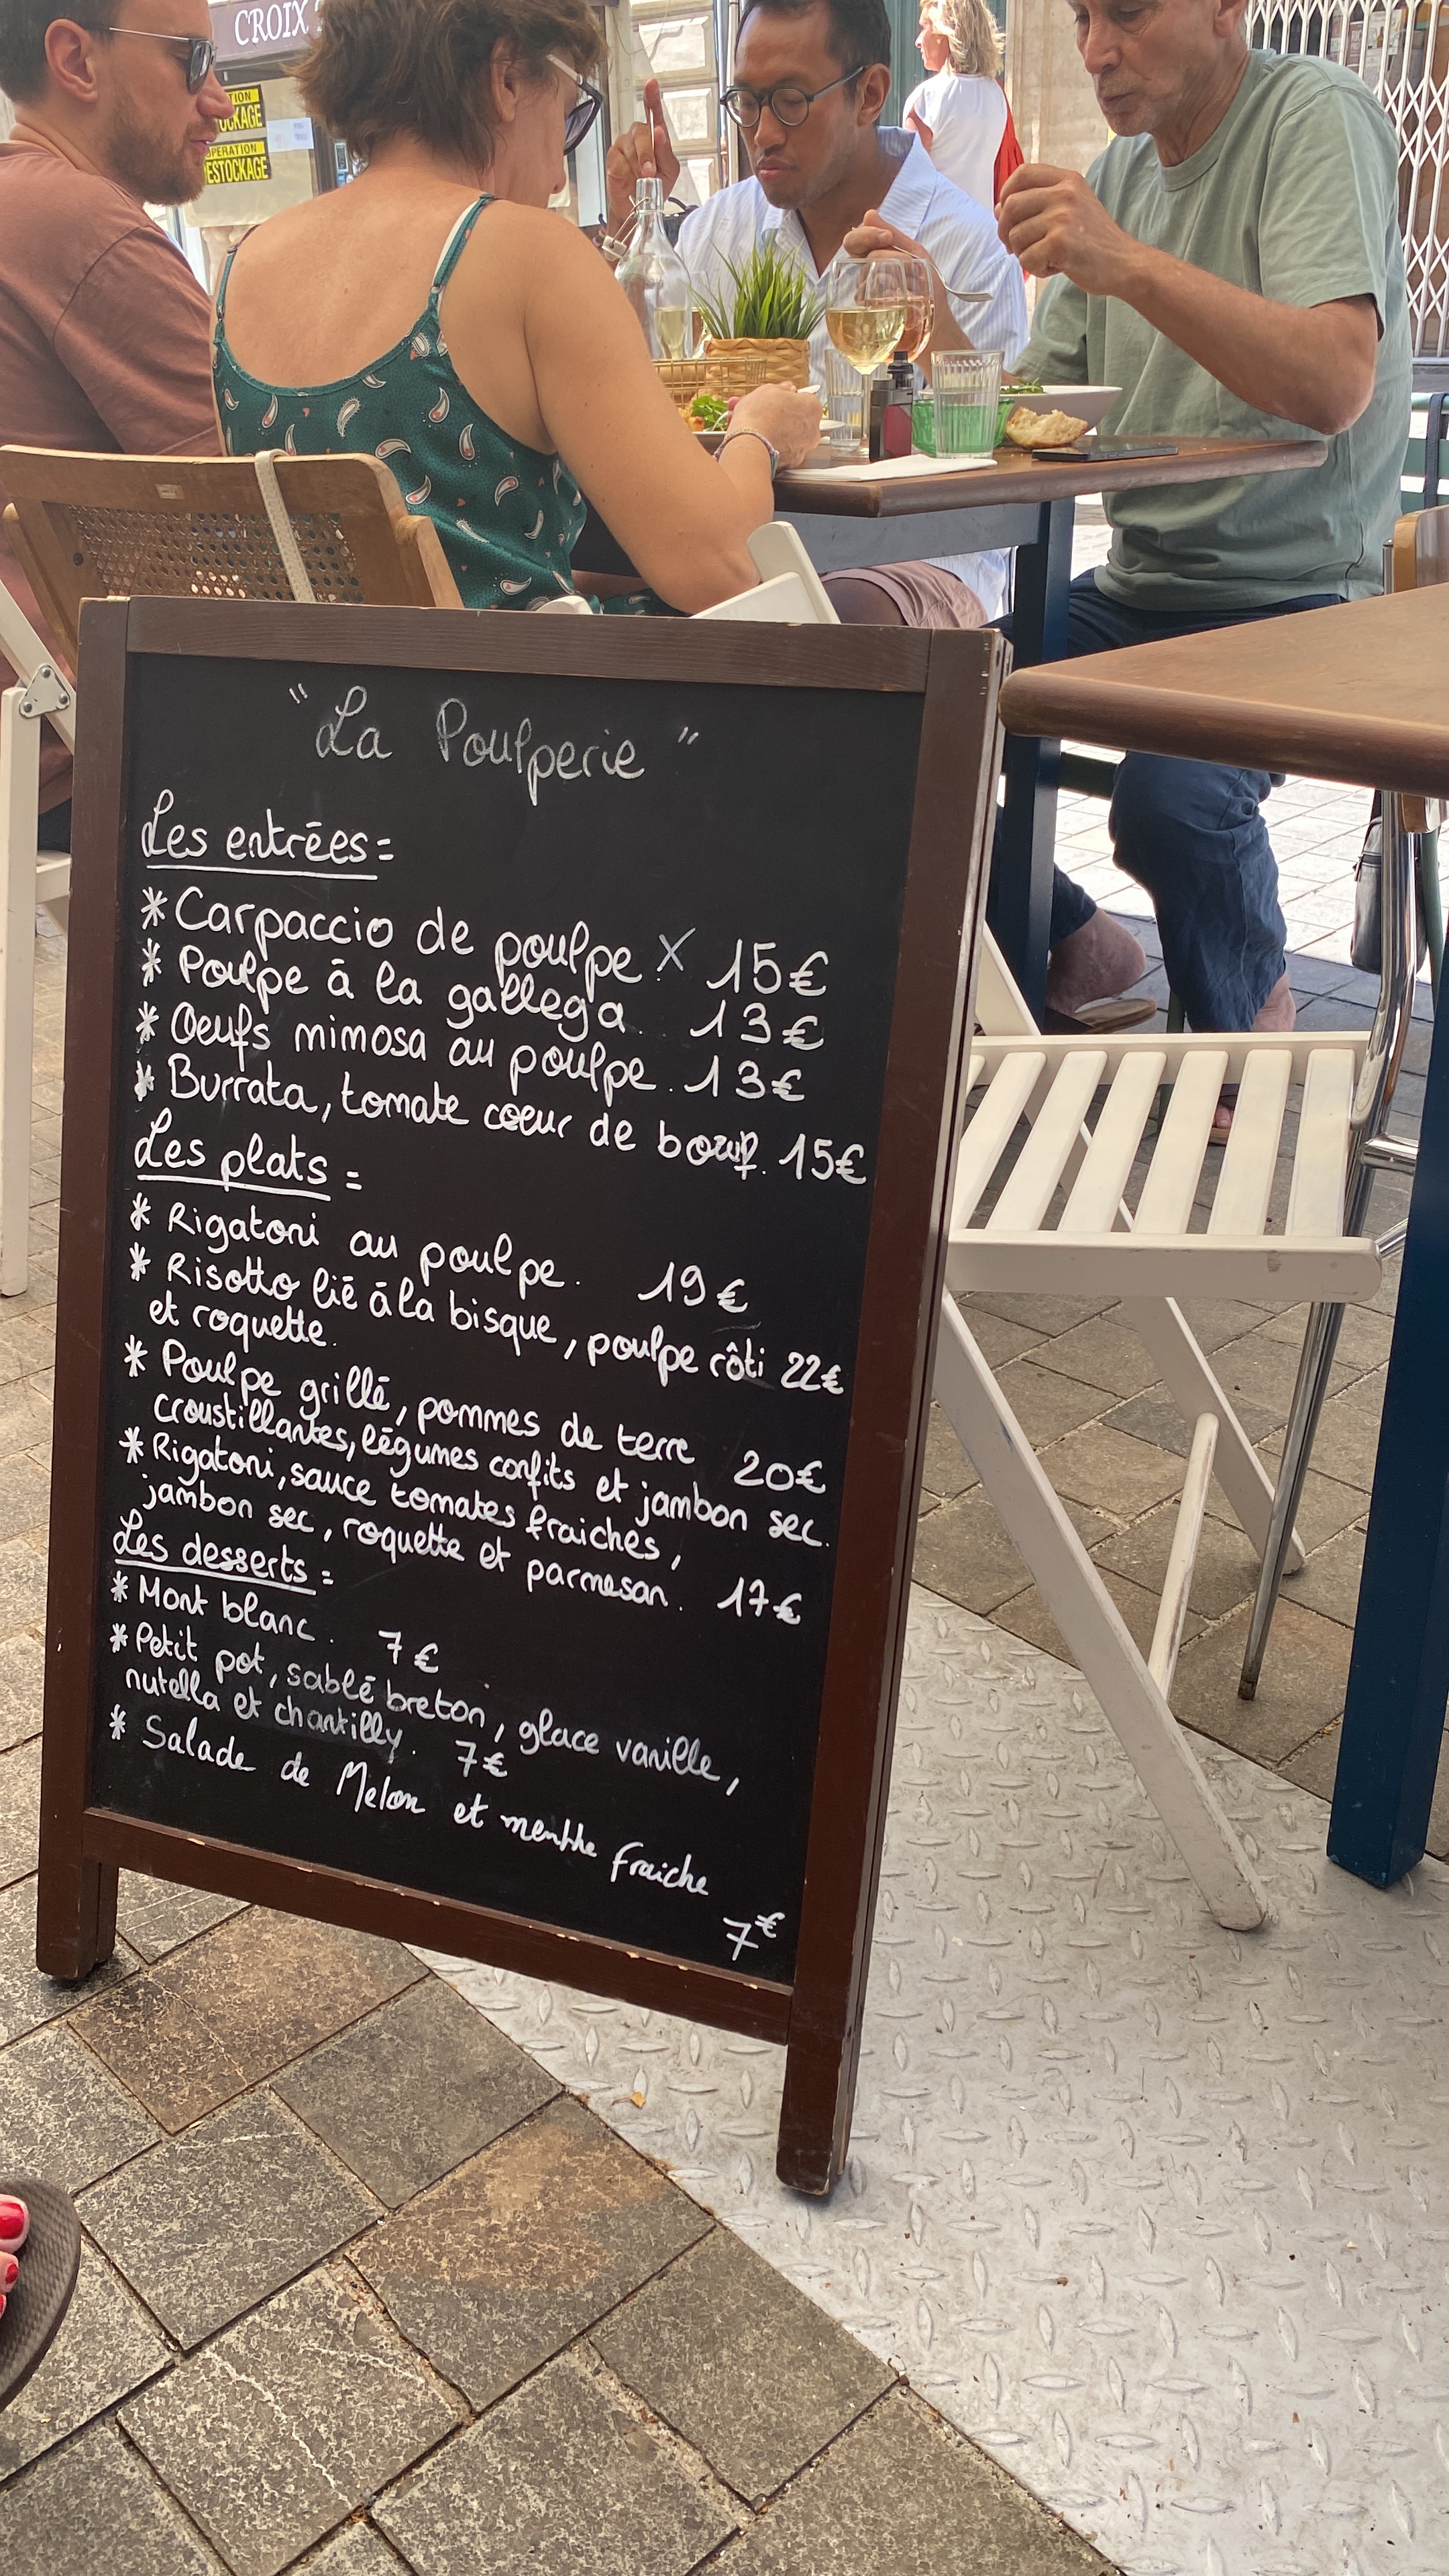 CROIX
TION
OCKAGE
OPERATION
ESTOCKAGE
"La Poulperie"
Les entrées =
* Carpaccio de poulpe X 15€
* Poulpe à la gallega. 13€
* Oeufs mimosa au poulpe. 13€
* Burrata, tomate coeur de boeuf. 15€
Les plats =
* Rigatoni au poulpe. 19€
* Risotto lié à la bisque, poulpe rôti 22€
et roquette.
* Poulpe grillé, pommes de terre 20€
croustillantes, légumes confits et jambon sec.
* Rigatoni, sauce tomates fraiches,
jambon sec, roquette et parmesan. 17€
Les desserts =
* Mont blanc. 7€
* Petit pot, sablé breton, glace vanille,
nutella et chantilly. 7€
* Salade de Melon et menthe fraiche
7€